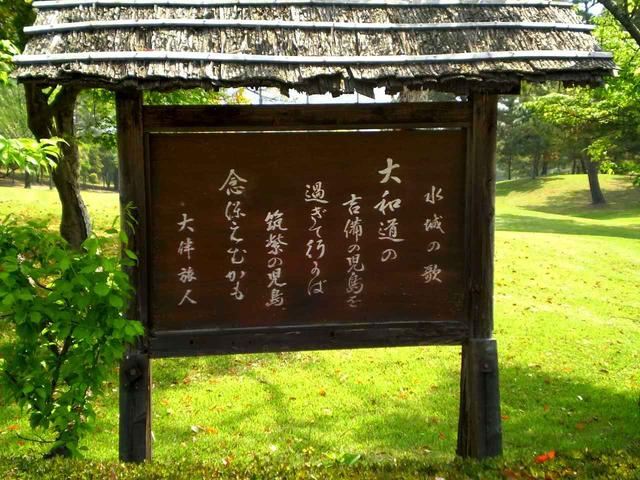 水城の歌
大和道の
吉備の児島を
過ぎて行かば
筑紫の児島
念ほえむかも
大伴旅人